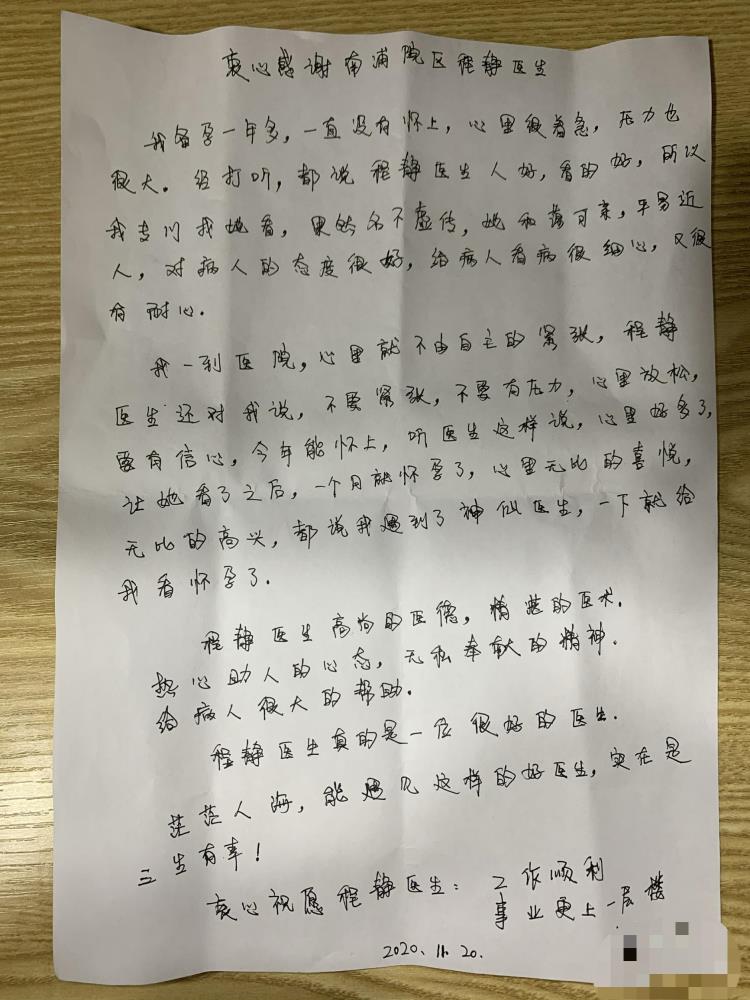 衷心感谢南浦院区程静医生
我备孕一年多，一直没有怀上，心里很着急，压力也
很大。经打听，都说程静医生人好，看的好，所以
我专门找她看，果然名不虚传，她和蔼可亲，平易近
人，对病人的态度很好，给病人看病很细心，又很
有耐心。
我一到医院，心里就不由自主的紧张，程静
医生还对我说，不要紧张，不要有压力，心里放松，
要有信心，今年能怀上，听医生这样说，心里好多了，
让她看了之后，一个月就怀孕了，心里无比的喜悦，
无比的高兴，都说我遇到了神仙医生，一下就给
我看怀孕了.
程静医生高尚的医德，精湛的医术.
热心助人的心态，无私奉献的精神.
给病人很大的帮助.
程静医生真的是一位很好的医生.
茫茫人海，能遇见这样的好医生，实在是
三生有幸！
衷心祝愿程静医生：工作顺利
事业更上一层楼
2020.11.20.